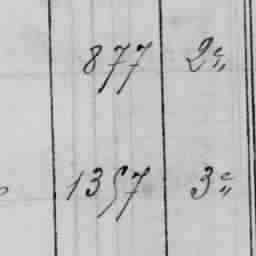 877 2 " "
1357 3 " "